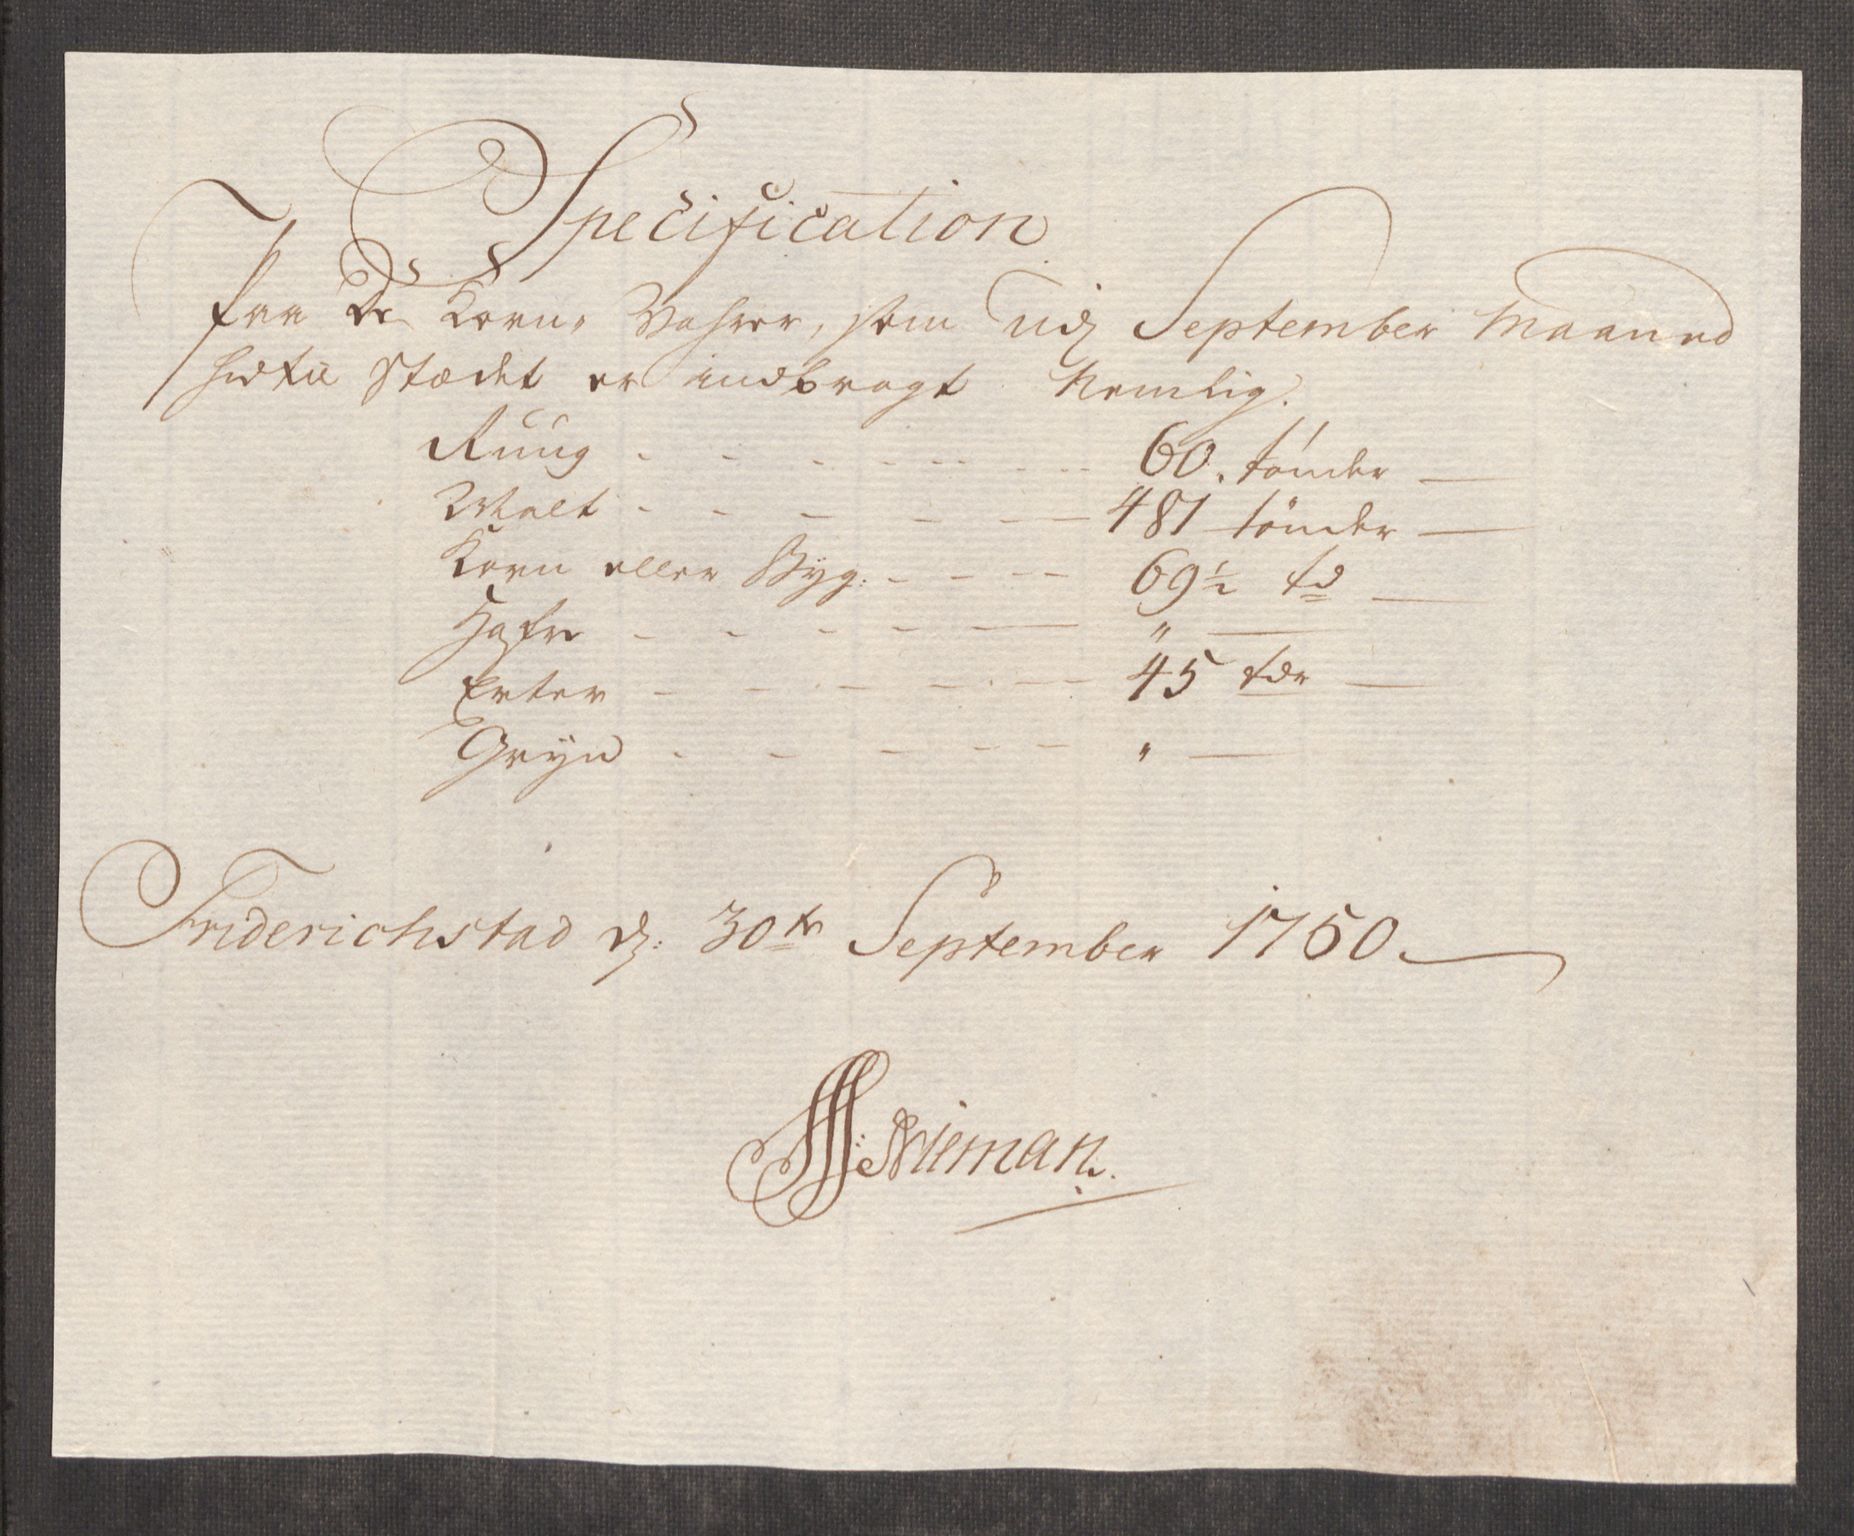 Specification
Paa De Korn, Vahrer, som udj September Maaned
hidtil Stædet er indbragt Nemlig.
Ruug - - - - - - - - 60. tønder —
Malt - - - - - - — 481 tønder —
Korn eller Byg: - - - - 69½ td —
Hafre - - - - — " —
Erter - - - - - - 45 tdr —
Gryn - - - - - " —
Friderichstad d: 30te September 1760
Nieman.